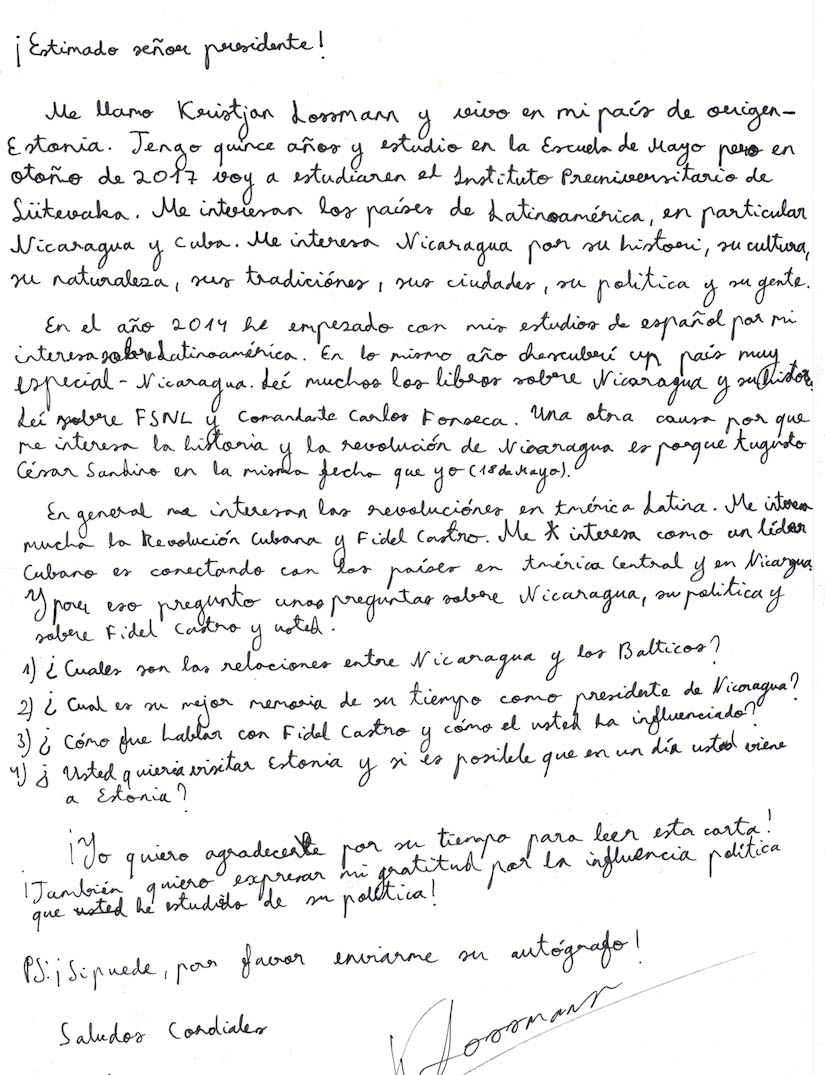 ¡Estimado señor presidente!
Me llamo Kristjan Lossmann y vivo en mi país de origen-
Estonia. Tengo quince años y estudio en la Escuela de Mayo pero en
otoño de 2017 voy a estudiaren el Instituto Preuniversitario de
Süítevaka. Me interesan los países de Latinoamérica, en particular
Nicaragua y Cuba. Me interesa Nicaragua por su histori, su cultura,
su naturaleza, sus tradiciónes, sus ciudades, su politica y su gente.
En el año 2014 he empezado con mis estudios de español por mi
interesa sobre Latinoamérica. En lo mismo año descuberí un país muy
especial - Nicaragua. Leí muchos los libros sobre Nicaragua y su histor.
Leí sobre FSNL y Comandante Carlos Fonseca. Una otra causa por que
me interesa la historia y la revolución de Nicaragua es porque Augusto
César Sandino en la misma fecha que yo (18 de Mayo).
En general me interesan las revoluciónes en América Latina. Me interesa
mucha la Revolución Cubana y Fidel Castro. Me interesa como un líder
Cubano es conectando con los países en América Central y en Nicargua.
Y por eso pregunto unas preguntas sobre Nicaragua, su politica y
sobere Fidel Castro y usted.
1) ¿Cuales son las relaciones entre Nicaragua y los Balticos?
2) ¿Cual es su mejor memoria de su tiempo como presidente de Nicaragua?
3) ¿Cómo fue hablar con Fidel Castro y cómo el usted ha influenciado?
4) ¿Usted quieria visitar Estonia y si es posible que en un día usted viene
a Estonia?
¡Yo quiero agradecerle por su tiempo para leer esta carta!
¡También quiero expresar mi gratitud por la influencia política
que usted he estudido de su política!
PS: ¡Si puede, por favor enviarme su autógrafo!
Saludos Cordiales
K Lossmann